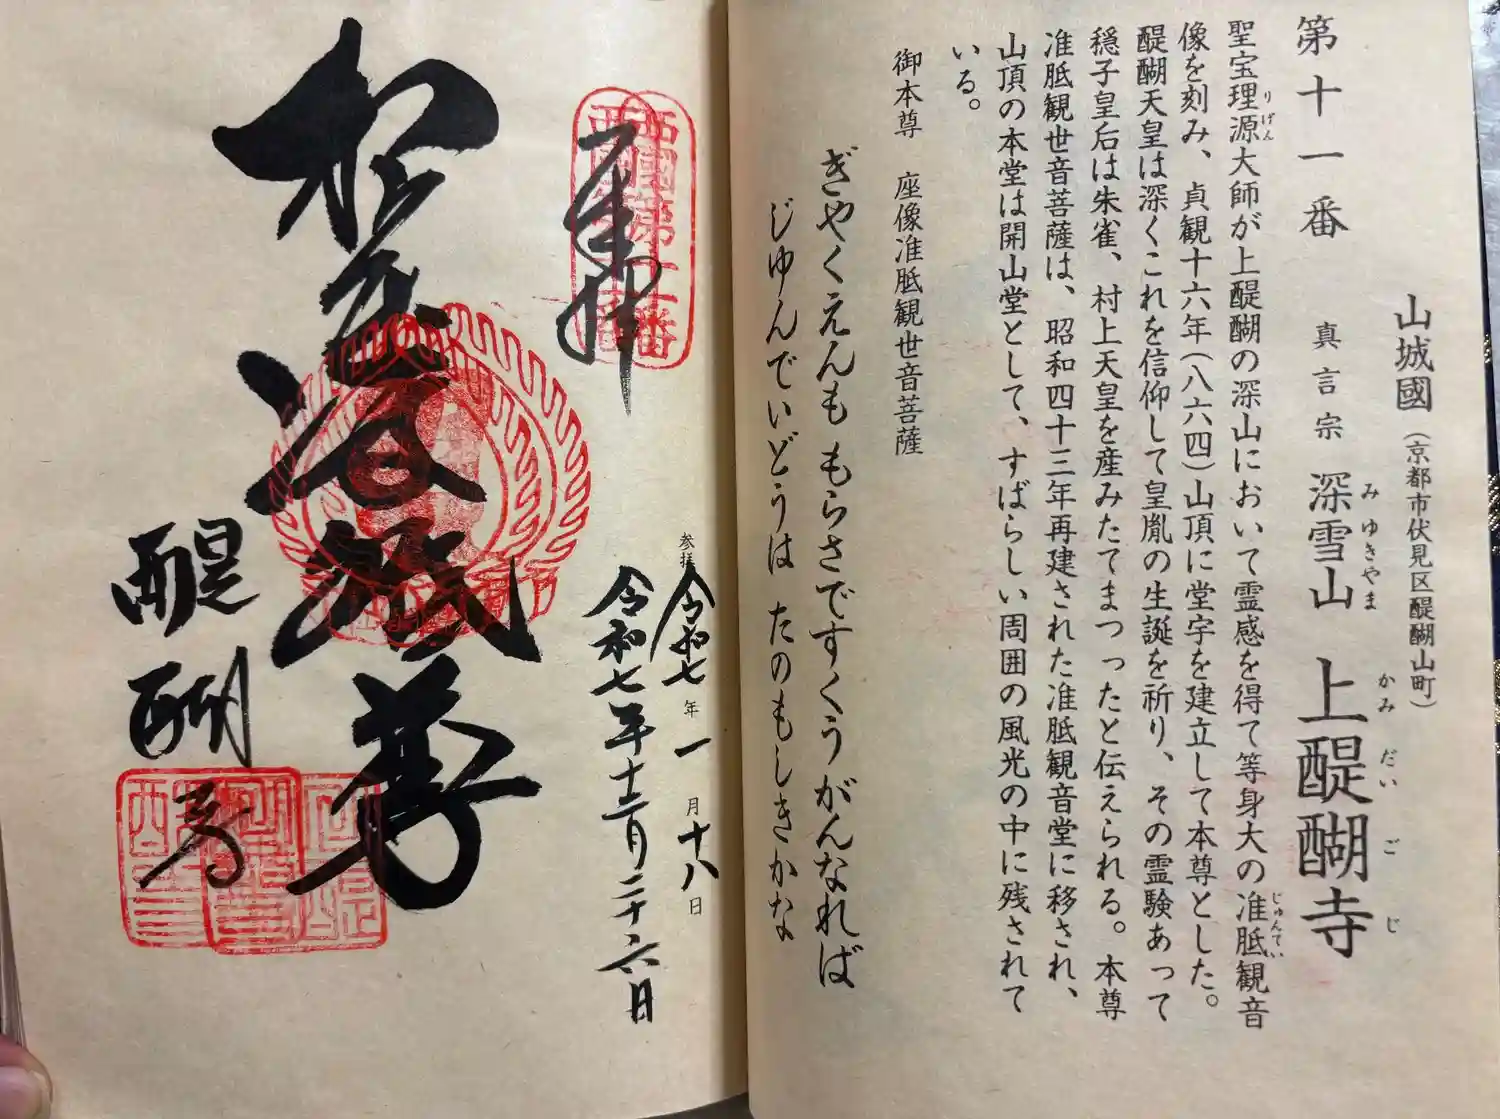 山城國（京都市伏見区醍醐山町）
第十一番　真言宗　深雪山　上醍醐寺
みゆきやま　かみだいごじ
聖宝理源大師が上醍醐の深山において霊感を得て等身大の准胝観音
りげん　じゅんてい
像を刻み、貞観十六年（八六四）山頂に堂宇を建立して本尊とした。
醍醐天皇は深くこれを信仰して皇胤の生誕を祈り、その霊験あって
穏子皇后は朱雀、村上天皇を産みたてまつったと伝えられる。本尊
准胝観世音菩薩は、昭和四十三年再建された准胝観音堂に移され、
山頂の本堂は開山堂として、すばらしい周囲の風光の中に残されて
いる。
御本尊　座像准胝観世音菩薩
ぎやくえんも　もらさですくうがんなれば
じゅんでいどうは　たのもしきかな
奉拝
西國第十一番
参拝　令和七年一月十八日
令和七年十二月二十六日
醍醐寺